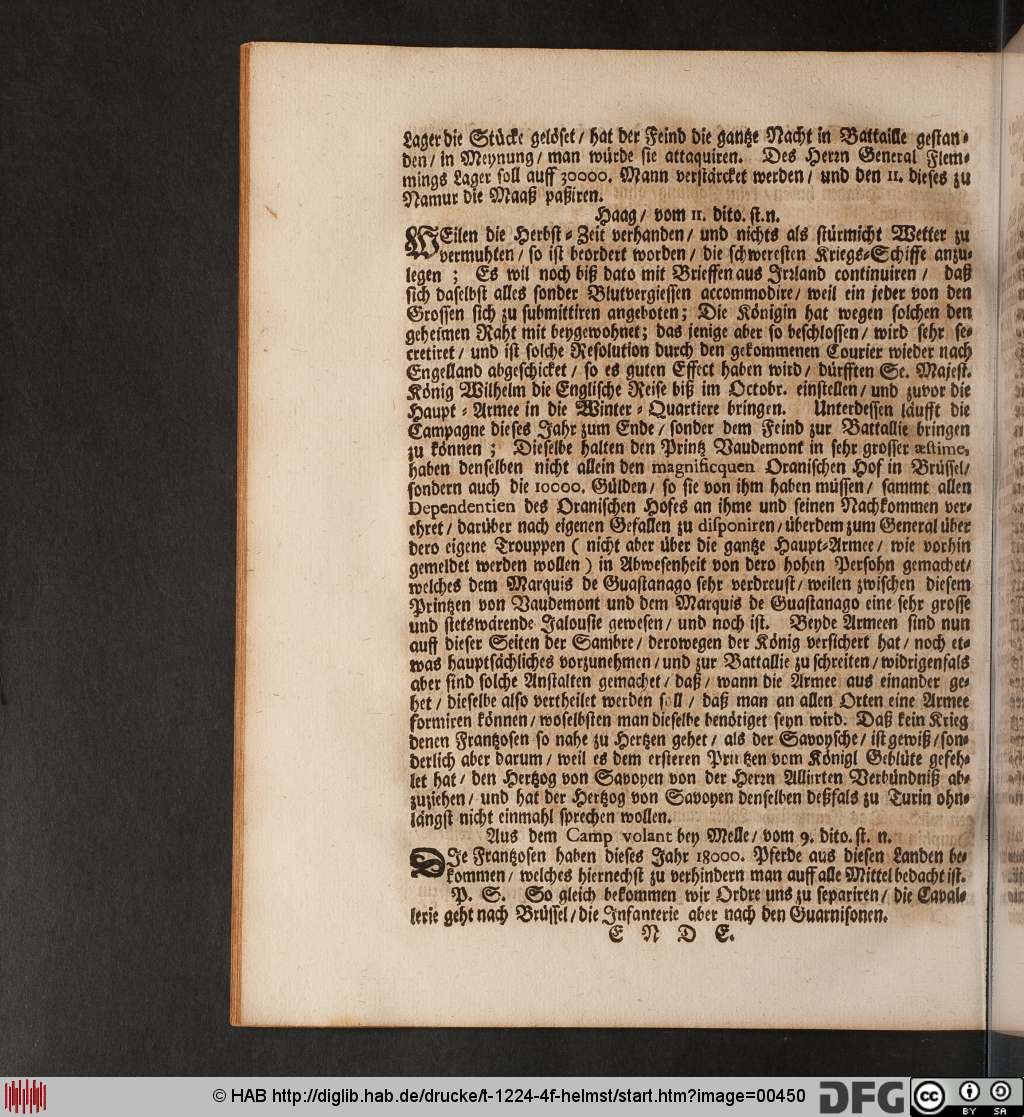 Lager die Stücke gelöset / hat der Feind die gantze Nacht in Battaille gestan-
den / in Meynung / man würde sie attaquiren. Des Herrn General Flem-
mings Lager soll auff 30000. Mann verstärcket werden / und den 11. dieses zu
Namur die Maaß paßiren.
Haag / vom 11. dito. st. n.
WEilen die Herbst-Zeit verhanden / und nichts als stürmicht Wetter zu
vermuhten / so ist beordert worden / die schweresten Kriegs-Schiffe anzu-
legen ; Es wil noch biß dato mit Brieffen aus Irrland continuiren / daß
sich daselbst alles sonder Blutvergiessen accommodire / weil ein jeder von den
Grossen sich zu submittiren angeboten ; Die Königin hat wegen solchen den
geheimen Raht mit beygewohnet ; das jenige aber so beschlossen / wird sehr se-
cretiret / und ist solche Resolution durch den gekommenen Courier wieder nach
Engelland abgeschicket / so es guten Effect haben wird / dürfften Se. Majest.
König Wilhelm die Englische Reise biß im Octobr. einstellen / und zuvor die
Haupt-Armee in die Winter-Quartiere bringen. Unterdessen läufft die
Campagne dieses Jahr zum Ende / sonder dem Feind zur Battallie bringen
zu können ; Dieselbe halten den Printz Vaudemont in sehr grosser æstime,
haben denselben nicht allein den magnificquen Oranischen Hof in Brüssel /
sondern auch die 10000. Gülden / so sie von ihm haben müssen / sammt allen
Dependentien des Oranischen Hofes an ihme und seinen Nachkommen ver-
ehret / darüber nach eigenen Gefallen zu disponiren / überdem zum General über
dero eigene Trouppen ( nicht aber über die gantze Haupt-Armee / wie vorhin
gemeldet werden wollen ) in Abwesenheit von dero hohen Persohn gemachet /
welches dem Marquis de Guastanago sehr verdreust / weilen zwischen diesem
Printzen von Vaudemont und dem Marquis de Guastanago eine sehr grosse
und stetswärende Jalousie gewesen / und noch ist. Beyde Armeen sind nun
auff dieser Seiten der Sambre / derowegen der König versichert hat / noch et-
was hauptsächliches vorzunehmen / und zur Battallie zu schreiten / widrigenfals
aber sind solche Anstalten gemachet / daß / wann die Armee aus einander ge-
het / dieselbe also vertheilet werden soll / daß man an allen Orten eine Armee
formiren können / woselbsten man dieselbe benötiget seyn wird. Daß kein Krieg
denen Frantzosen so nahe zu Hertzen gehet / als der Savoysche / ist gewiß / son-
derlich aber darum / weil es dem ersteren Printzen vom Königl Geblüte gefeh-
let hat / den Hertzog von Savoyen von der Herrn Alliirten Verbündniß ab-
zuziehen / und hat der Hertzog von Savoyen denselben deßfals zu Turin ohn-
längst nicht einmahl sprechen wollen.
Aus dem Camp volant bey Melle / vom 9. dito. st. n.
DIe Frantzosen haben dieses Jahr 18000. Pferde aus diesen Landen be-
kommen / welches hiernechst zu verhindern man auff alle Mittel bedacht ist.
P. S. So gleich bekommen wir Ordre uns zu separiren / die Caval-
lerie geht nach Brüssel / die Infanterie aber nach den Guarnisonen.
E N D E.
© HAB http://diglib.hab.de/drucke/t-1224-4f-helmst/start.htm?image=00450
DFG
cc BY SA